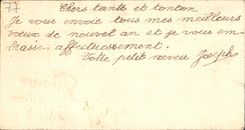 77
Chers tante et tonton
Je vous envoie tous mes meilleurs
vœux de nouvel an et je vous em-
brasse affectueusement.
Votre petit neveu Joseph